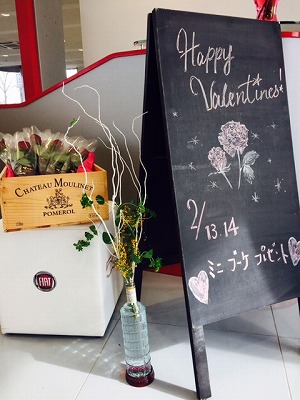 Happy
Valentines!
2/13.14
ミニブーケプレゼント
CHATEAU MOULINET
POMEROL
FIAT